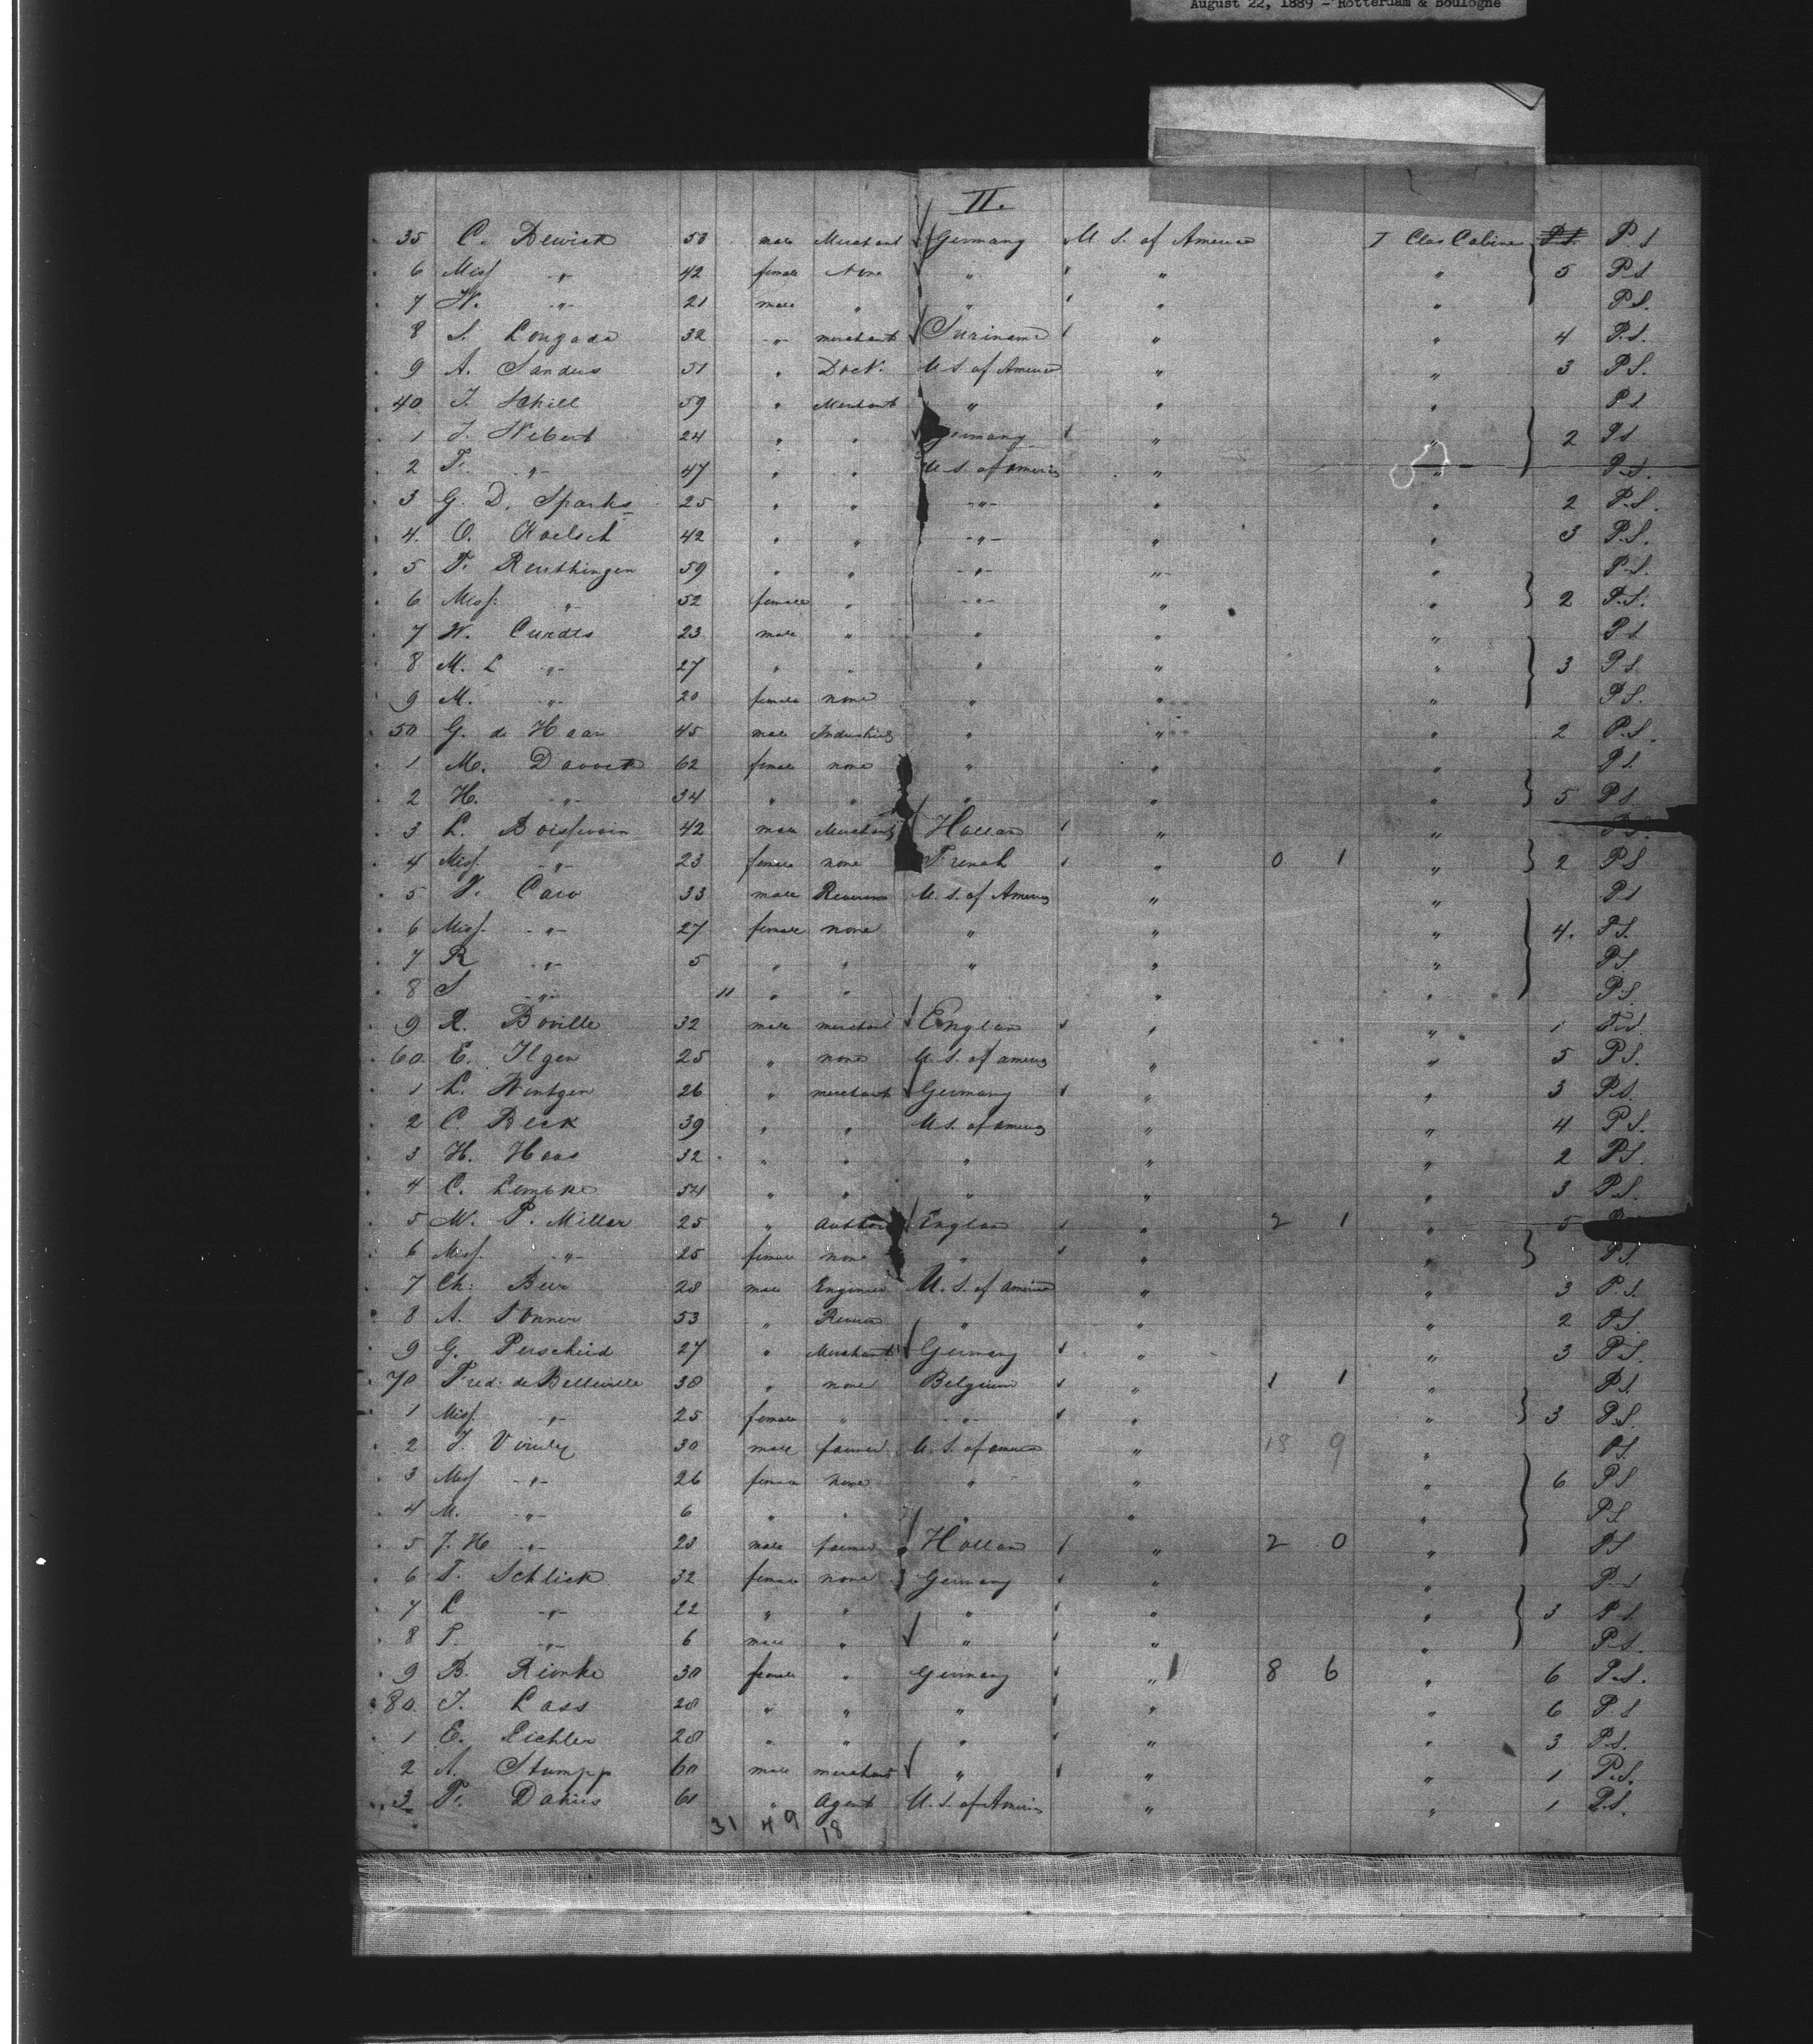 August 22, 1889 - Rotterdam & Boulogne
II.
35 C. Dewick 50 male Merchant Germany U. S. of America I Clas Cabine P.S. P. S
6 Miss " 42 female None " " " 5 P.S
7 W. " 21 male " " " " P.S.
8 S. 32 " merchant Suriname " " 4 P.S.
9 A. Sanders 51 " Doct. U. S. of America " " 3 P.S.
40 J. Schill 59 " Merchant " " " P.S.
1 J. Wibert 24 " " Germany " " 2 P.S
2 F. " 47 " " U. S. of America " " P.S.
3 G. D. Sparks 25 " " " " " 2 P.S.
4. O. Koelsch 42 " " " " " 3 P.S.
5 F. Reuthingen 59 " " " " " P.S.
6 Miss. " 52 female " " " " 2 P.S.
7 W. Cundts 23 male " " " " P.S
8 M. L " 27 " " " " " 3 P.S.
9 M. " 20 female none " " " P.S.
50 G. de Haan 45 male " " " 2 P.S.
1 M. 62 female none " " " P.S.
2 H. " 34 " " " " " 5 P.S
3 L. Boissevain 42 male Merchant Holland " " P.S.
4 Miss. " 23 female none French " 0 1 " 2 P.S
5 V. Caro 33 male U. S. of America " " P.S
6 Miss. " 27 female none " " " 4. P.S.
7 R " 5 " " " " " P.S.
8 S " 11 " " " " P.S.
9 R. Boville 32 male merchant England " " 1 P.S.
60 E. Ilgen 25 " none U. S. of America " " 5 P.S.
1 L. Wintgen 26 " merchant Germany " " 3 P.S.
2 C. Beck 39 " " U.S. of America " " 4 P.S.
3 H. Haas 32 " " " " " 2 P.S.
4 C. Lembke 54 " " " " " 3 P.S.
5 W. P. Miller 25 " Author England " 2 1 " 5
6 Miss. " 25 female none " " " P.S.
7 Ch: 28 male Engineer U. S. of America " " 3 P.S.
8 A. 53 " " " " 2 P.S.
9 G. Perscheid 27 " Merchant Germany " " 3 P.S.
70 Fred: de Belleville 38 " none Belgium " 1 1 " P.S.
1 Miss. " 25 female " " " " 3 P.S.
2 J. 30 male farmer U. S. of America " 18 9 " P.S.
3 Miss " 26 female none " " " 6 P.S
4 M. " 6 " " " " " P.S
5 J. H " 23 male farmer Holland " 2 0 " P.S
6 F. Schlick 32 female none Germany " " P.S
7 L " 22 " " " " " 3 P.S
8 P. " 6 male " " " " P.S.
9 B. Rienke 30 female " Germany " 1 8 6 " 6 P.S.
80. J. Lass 28 " " " " " 6 P.S
1 E. Eichler 28 " " " " " 3 P.S.
2 A. Stumpp 60 male merchant " " " 1 P.S.
3 F. 61 " Agent U. S. of America " " 1 P.S.
31 49 18